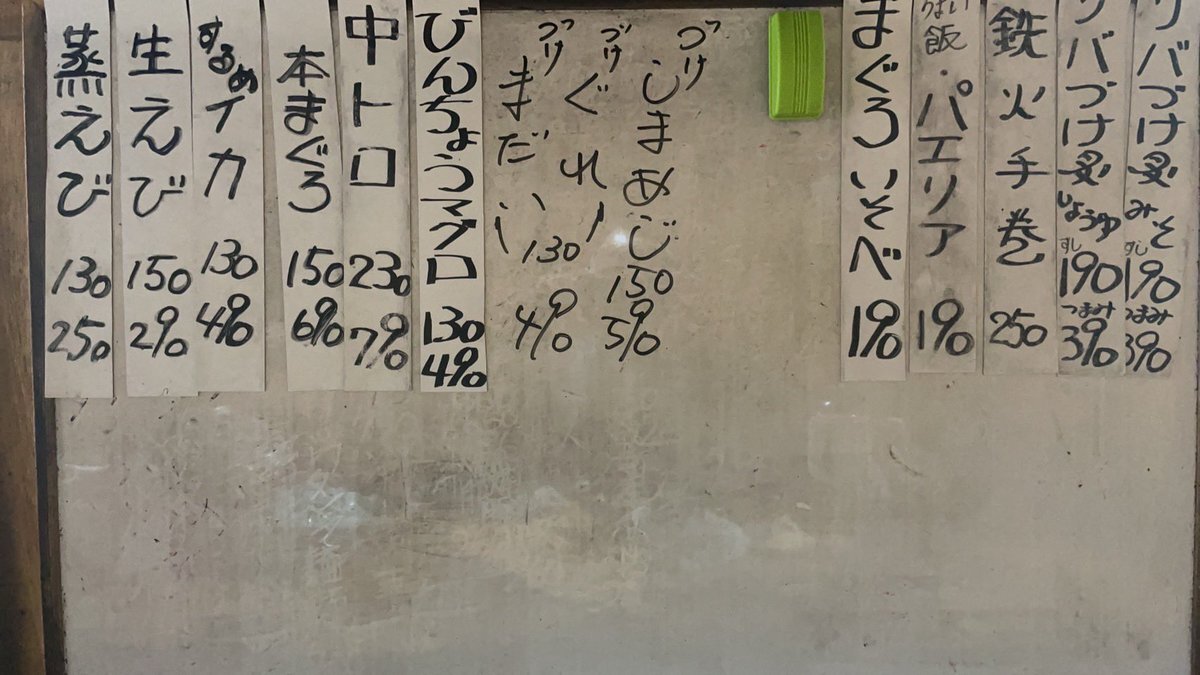 バづけ炙みそ
すし190
つまみ390
バづけ炙しょうゆ
すし190
つまみ390
鉄火手巻
250
飯・パエリア
190
まぐろいそべ
190
づけ
しまあじ
150
590
づけ
ぐれ
づけ
まだい
130
490
びんちょうマグロ
130
490
中トロ
230
790
本まぐろ
150
690
するめイカ
130
490
生えび
150
290
蒸えび
130
250